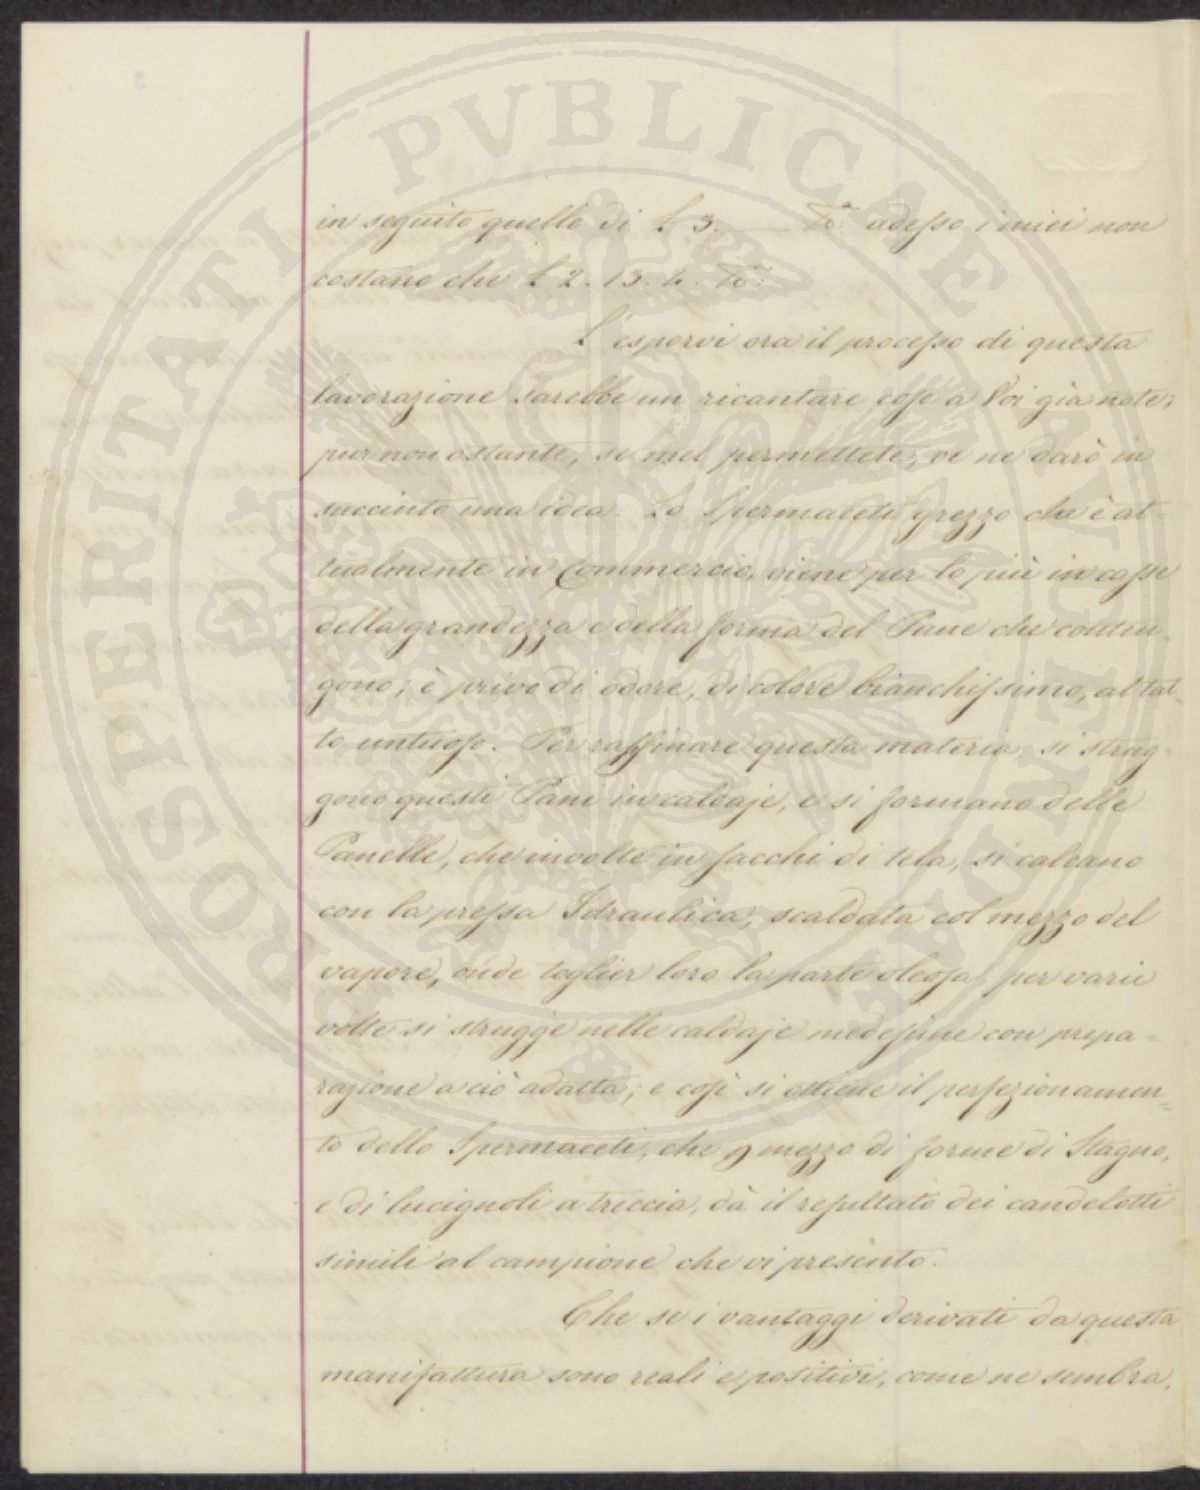 in seguito quello di £ 3. — adesso i miei non
costano che £ 2. 13. 4.
L'esporvi ora il processo di questa
lavorazione sarebbe un ricantare cose a Voi già note;
pur non ostante, se mel permettete, ve ne darò in
succinto una idea. Lo Spermaceti grezzo che è at-
tualmente in Commercio, viene per lo più in casse
della grandezza e della forma del Pane che conten-
gono; è privo di odore, di colore bianchissimo, al tat-
to untuoso. Per raffinare questa materia si strug-
gono questi Pani in caldaje, e si formano delle
Panelle, che involte in sacchi di tela, si calcano
con la pressa Idraulica, scaldata col mezzo del
vapore, onde toglier loro la parte oleosa per varie
volte si strugge nelle caldaje medesime con prepa-
razione a ciò adatta; e così si ottiene il perfezionamen=
to dello Spermaceti, che mezzo di forme di Stagno,
e di lucignoli a treccia, dà il resultato dei candelotti
simili al campione che vi presento.
Che se i vantaggi derivati da questa
manifattura sono reali e positivi, come ne sembra,
PROSPERITATI PVBLICAE AVGENDAE